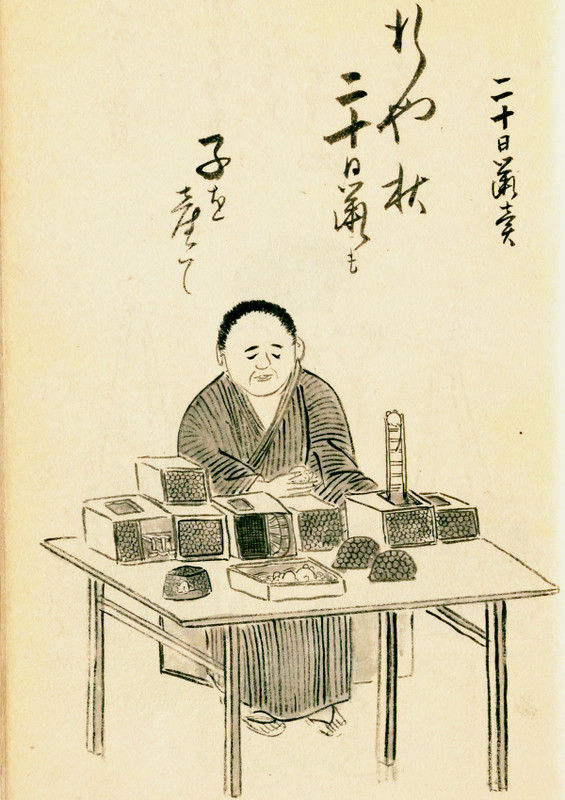 二十日鼠賣
行や秋
二十日鼠も
子を
産て